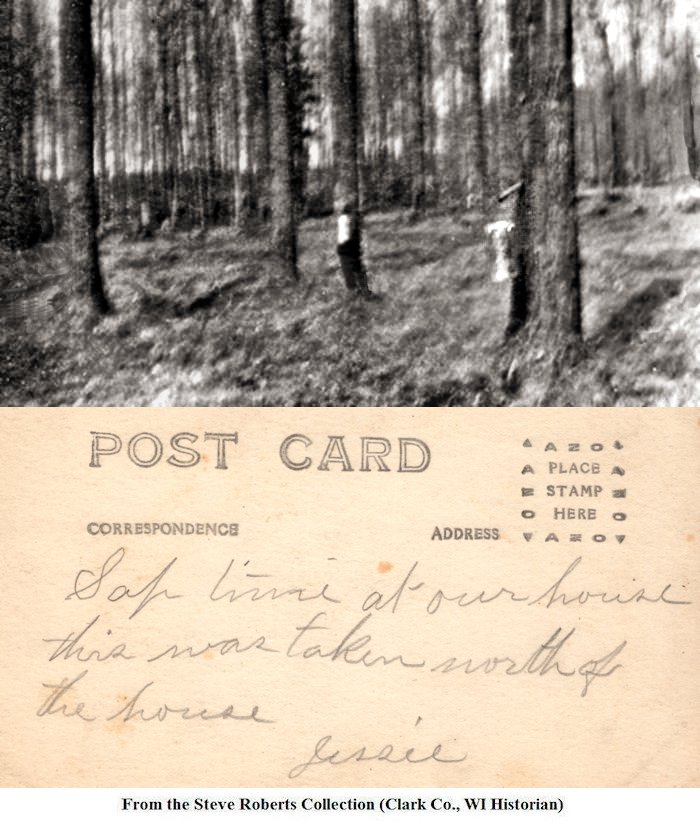 POST CARD
CORRESPONDENCE
ADDRESS
AZO
PLACE
STAMP
HERE
AZO
Sap time at our house
this was taken north of
the house
Jessie
From the Steve Roberts Collection (Clark Co., WI Historian)